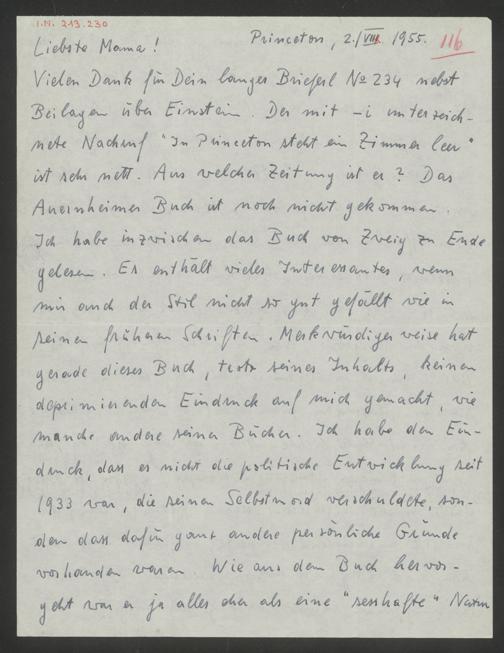 I.N. 213.230
Princeton, 2./VIII. 1955.
116
Liebste Mama!
Vielen Dank für Dein langes Brieferl № 234 nebst
Beilagen über Einstein. Der mit -i unterzeich-
nete Nachruf "In Princeton steht ein Zimmer leer"
ist sehr nett. Aus welcher Zeitung ist er? Das
Auernheimer Buch ist noch nicht gekommen.
Ich habe inzwischen das Buch von Zweig zu Ende
gelesen. Es enthält vieles Interessantes, wenn
mir auch der Stil nicht so gut gefällt wie in
seinen früheren Schriften. Merkwürdigerweise hat
gerade dieses Buch, trotz seines Inhalts, keinen
deprimierenden Eindruck auf mich gemacht, wie
manche andere seiner Bücher. Ich habe den Ein-
druck, dass es nicht die politische Entwicklung seit
1933 war, die seinen Selbstmord verschuldete, son-
dern dass dafür ganz andere persönliche Gründe
vorhanden waren. Wie aus dem Buch hervor-
geht war er ja alles eher als eine "sesshafte" Natur